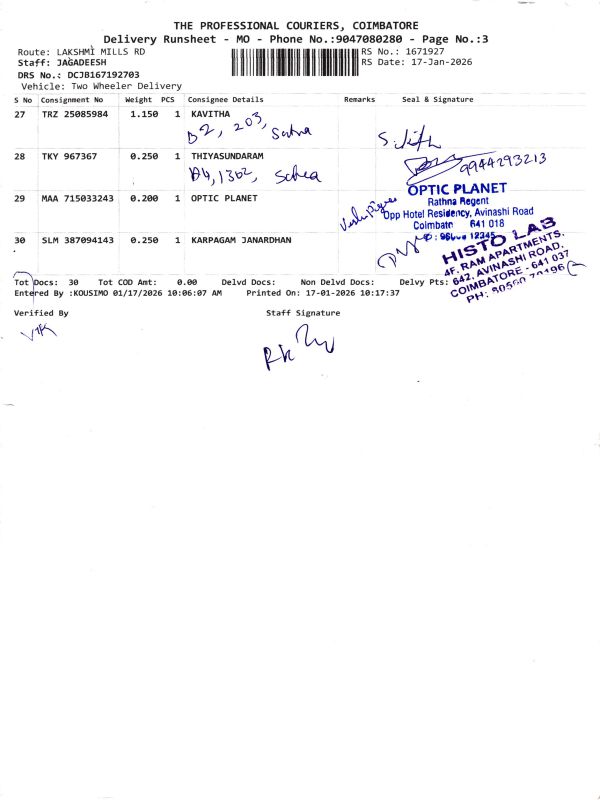 THE PROFESSIONAL COURIERS, COIMBATORE
Delivery Runsheet - MO - Phone No.:9047080280 - Page No.:3
Route: LAKSHMI MILLS RD
RS No.: 1671927
Staff: JAGADEESH
RS Date: 17-Jan-2026
DRS No.: DCJB167192703
Vehicle: Two Wheeler Delivery
S No Consignment No Weight PCS Consignee Details Remarks Seal & Signature
27 TRZ 25085984 1.150 1 KAVITHA
D2, 203,
28 TKY 967367 0.250 1 THIYASUNDARAM
9944293213
D4, 1302,
29 MAA 715033243 0.200 1 OPTIC PLANET
OPTIC PLANET
Rathna Regent
Opp Hotel Residency, Avinashi Road
Coimbatore 641 018
30 SLM 387094143 0.250 1 KARPAGAM JANARDHAN
HISTO LAB
4F, RAM APARTMENTS,
642, AVINASHI ROAD,
COIMBATORE - 641 037
PH:
Tot Docs: 30 Tot COD Amt: 0.00 Delvd Docs: Non Delvd Docs: Delvy Pts:
Entered By :KOUSIMO 01/17/2026 10:06:07 AM Printed On: 17-01-2026 10:17:37
Verified By Staff Signature